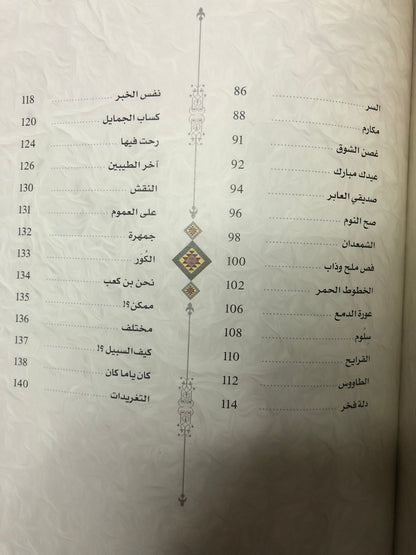 السر 86
مكارم 88
غصن الشوق 91
عيدك مبارك 92
صديقي العابر 94
صح النوم 96
الشمعدان 98
فص ملح وذاب 100
الخطوط الحمر 102
عورة الدمع 106
سلوم 108
القرايح 110
الطاووس 112
دلة فخر 114
نفس الخبر 118
كساب الجمايل 120
رحت فيها 124
آخر الطيبين 126
النقش 130
على العموم 131
جمهرة 132
الكَور 133
نحن بن كعب 134
ممكن؟! 135
مختلف 136
كيف السبيل؟! 137
كان ياما كان 138
التغريدات 140